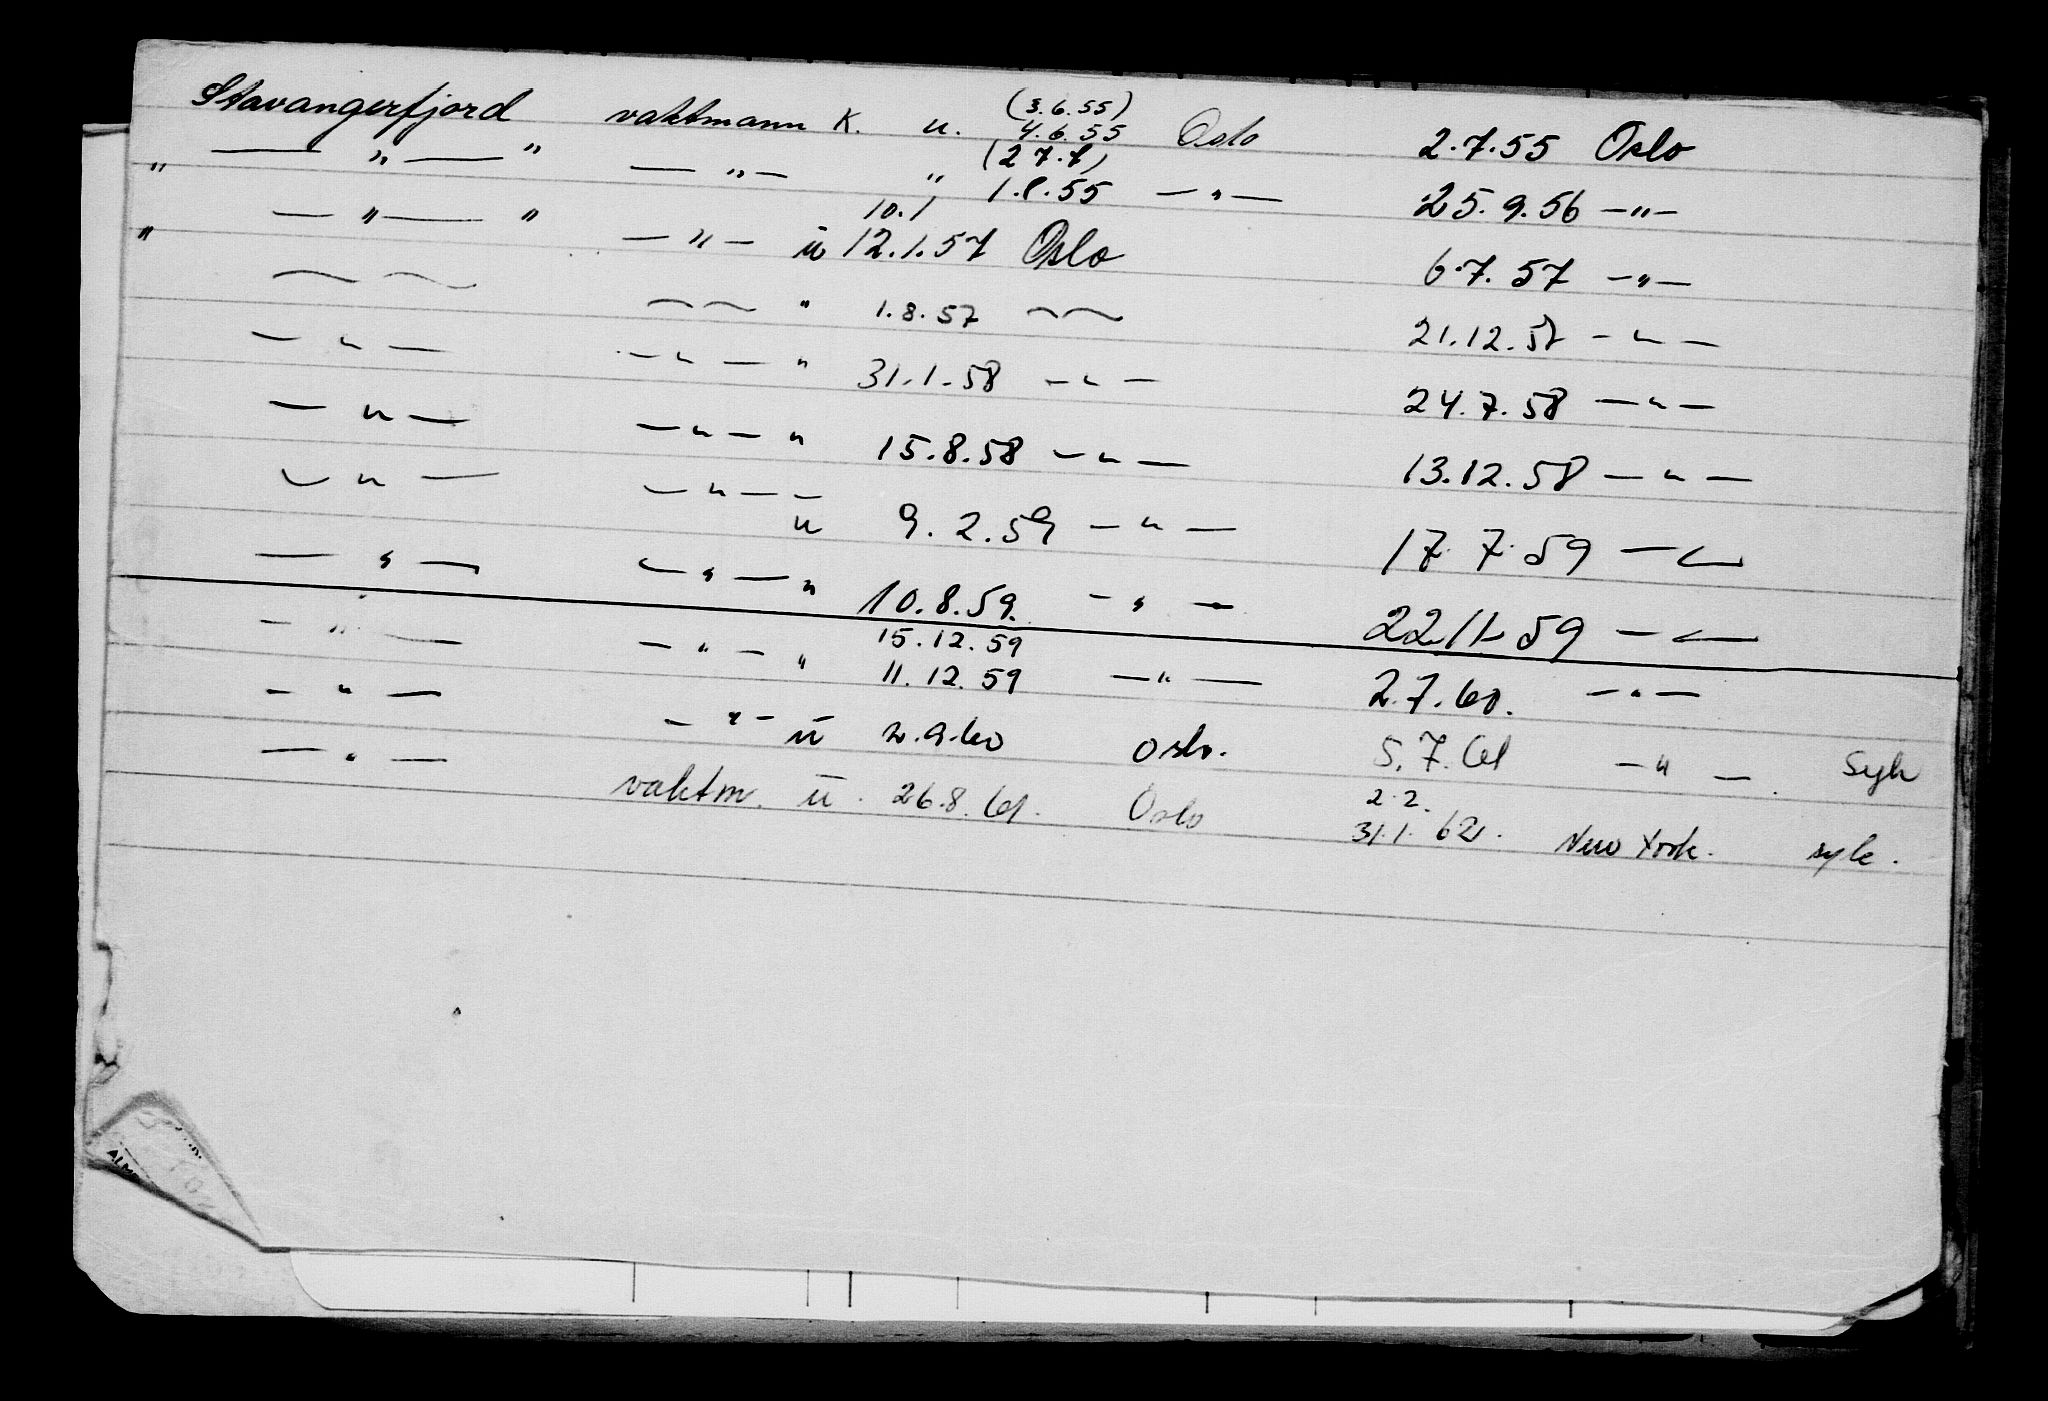 Stavangerfjord vaktmann K. u. (3.6.55) 4.6.55 Oslo 2.7.55 Oslo
" — " — " — " — " (27.7) 1.8.55 — " — 25.9.56 — " —
" — " — " — " — u 10.1 12.1.57 Oslo 6.7.57 — " —
— — — — " 1.8.57 — — 21.12.57 — " —
— " — — " — " 31.1.58 — " — 24.7.58 — " —
— " — — " — " 15.8.58 — " — 13.12.58 — " —
— " — — " — — u 9.2.59 — " — 17.7.59 — " —
— " — — " — " 10.8.59. — " — 22.11.59 — " —
— " — — " — " 15.12.59 11.12.59 — " — 2.7.60. — " —
— " — — " — u 2.9.60 Oslo. 5.7.61 — " — . Syk
— " — vaktm. u. 26.8.61. Oslo 2.2. 31.1.62. New York. syk.
ALM